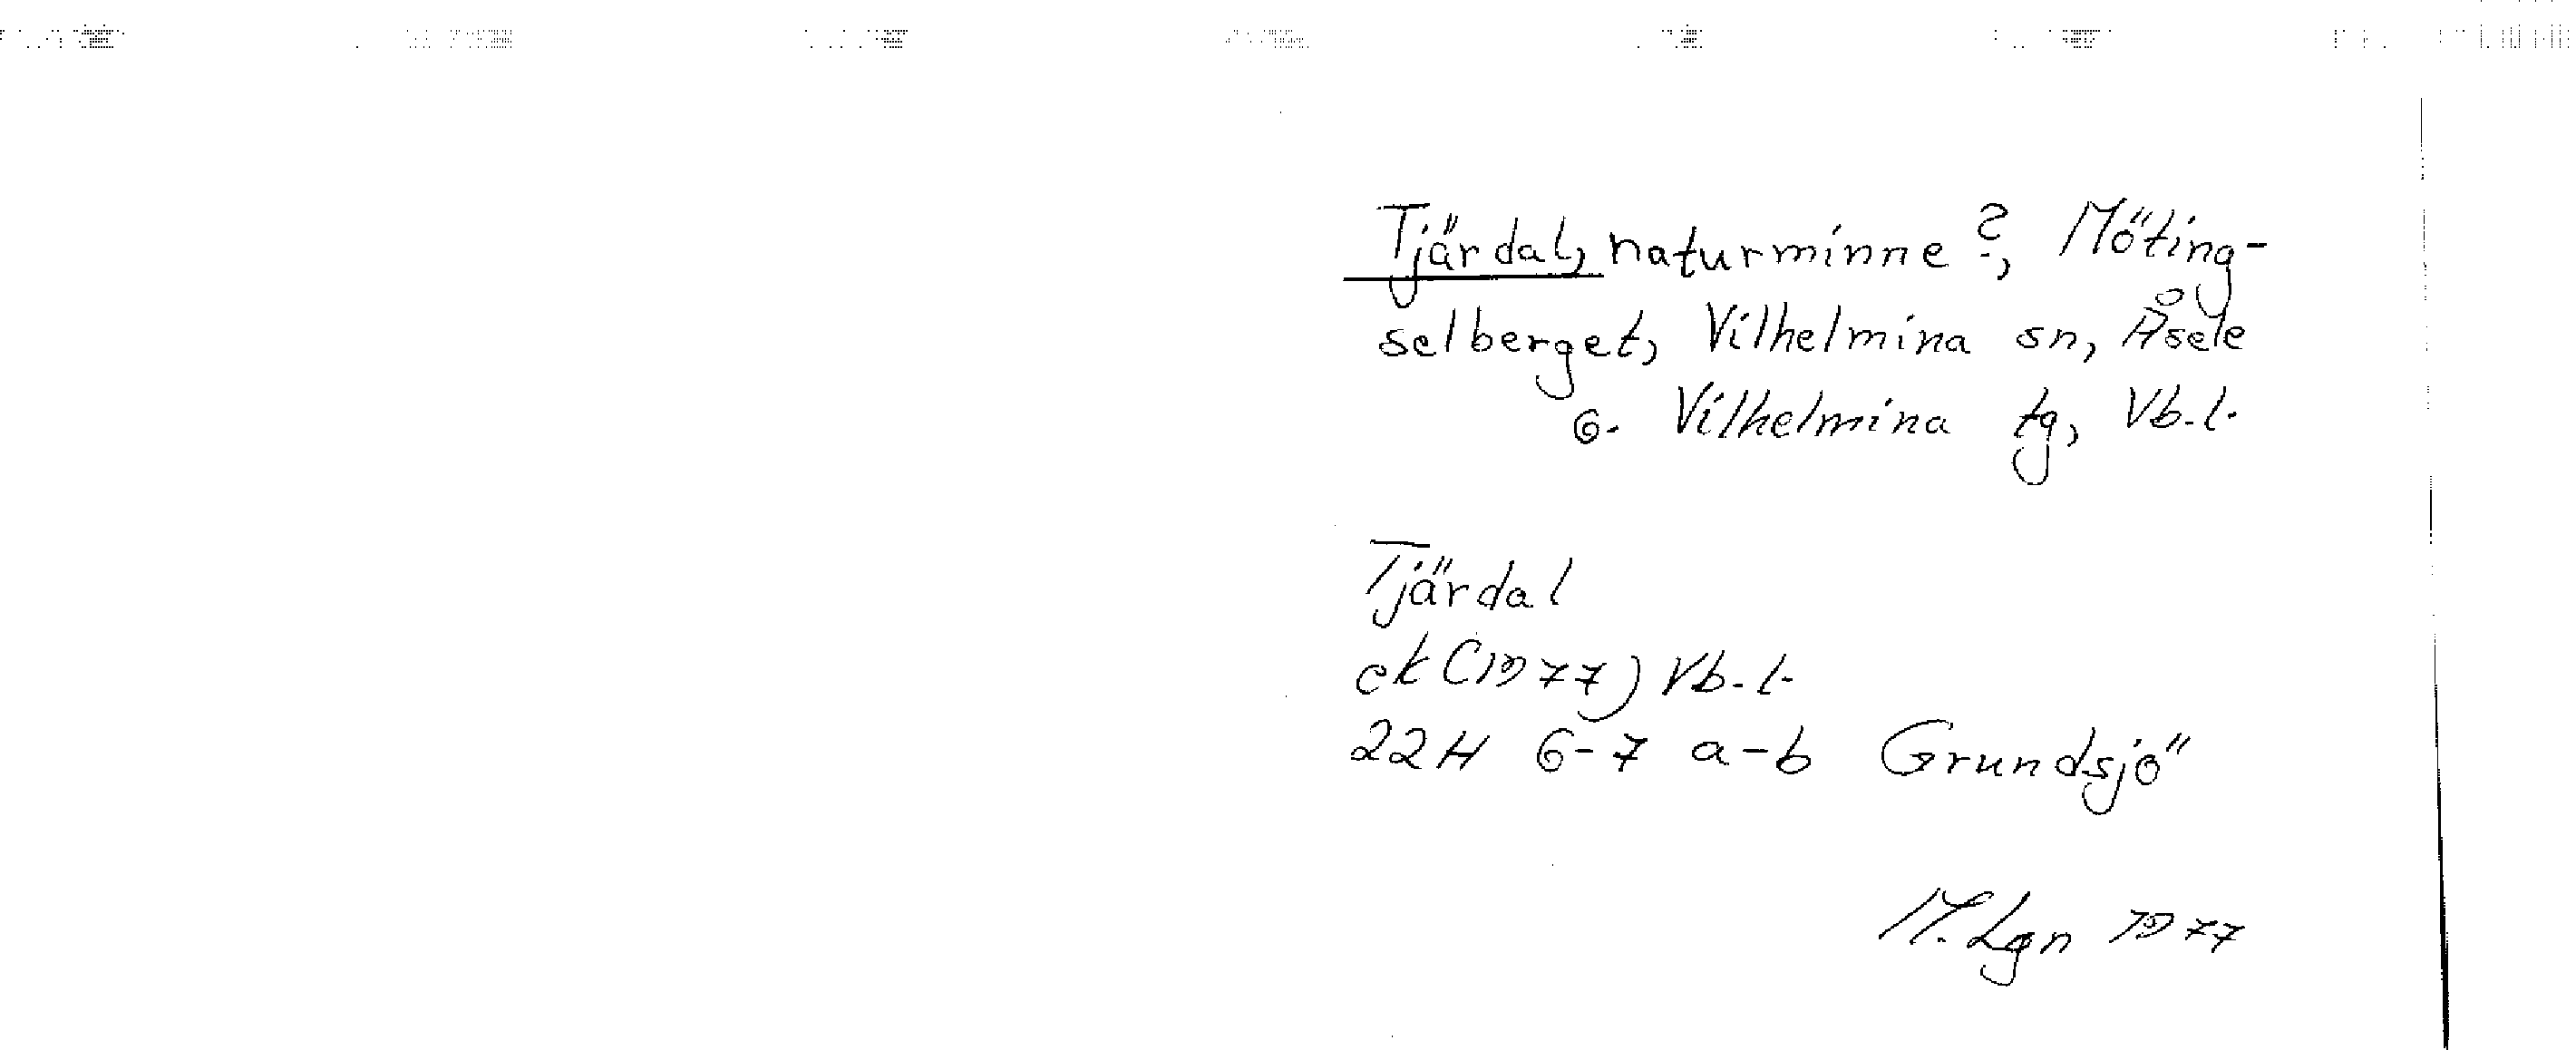 Tjärdal, naturminne?, Möting-
selberget, Vilhelmina sn, Åsele
o. Vilhelmina tg, Vb. l.
Tjärdal
ek (1977) Vb. l.
22H 6-7 a-b Grundsjö
M. Lgn 1977